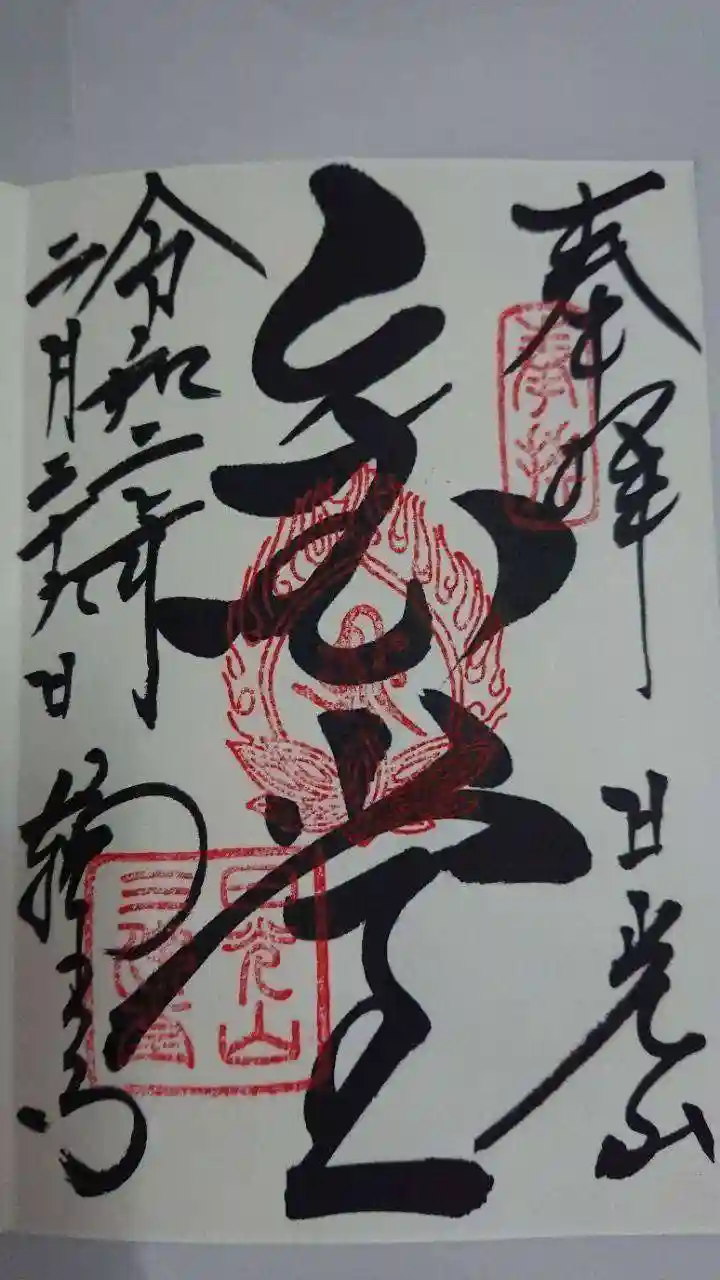 奉拝
奉拝
日光山
堂
日光山
令和二年
二月二十九日
輪王寺